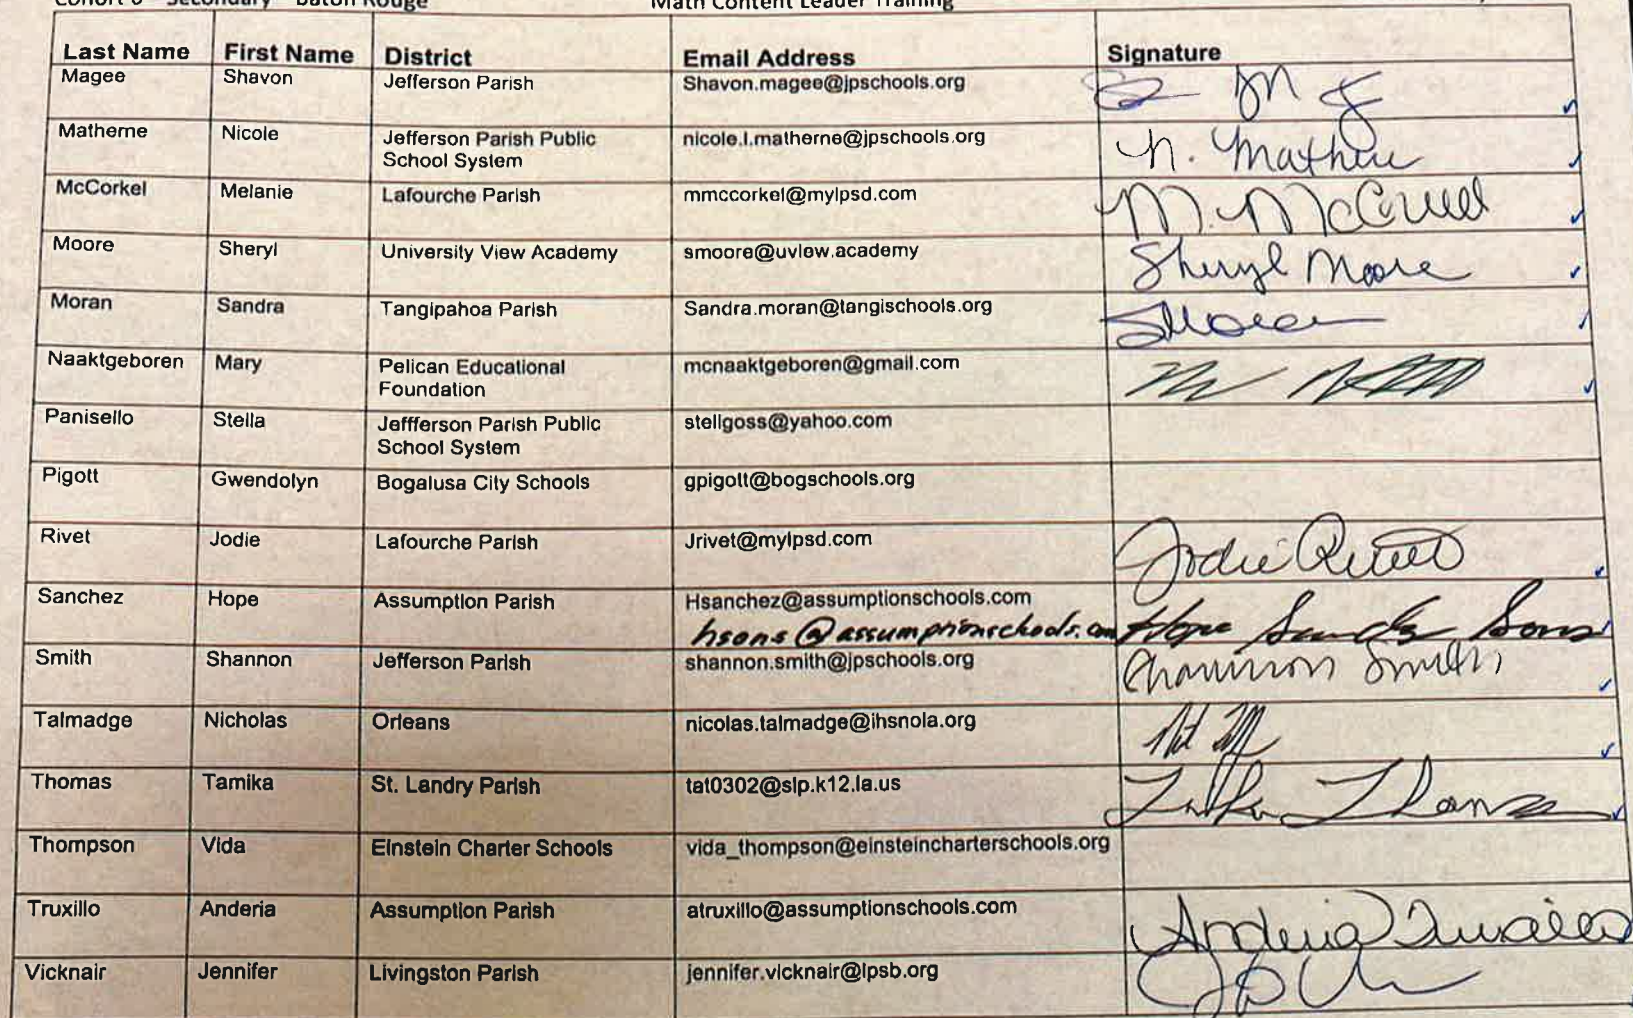 Secondary Baton Rouge Math Content Leader Training
Last Name First Name District Email Address Signature
Magee Shavon Jefferson Parish Shavon.magee@jpschools.org
Matherne Nicole Jefferson Parish Public nicole.l.matherne@jpschools.org N. Matherne
School System
McCorkel Melanie Lafourche Parish mmccorkel@mylpsd.com M. McCorkel
Moore Sheryl University View Academy smoore@uview.academy Sheryl Moore
Moran Sandra Tangipahoa Parish Sandra.moran@tangischools.org SMoran
Naaktgeboren Mary Pelican Educational mcnaaktgeboren@gmail.com
Foundation
Panisello Stella Jeffferson Parish Public stellgoss@yahoo.com
School System
Pigott Gwendolyn Bogalusa City Schools gpigott@bogschools.org
Rivet Jodie Lafourche Parish Jrivet@mylpsd.com Jodie Rivet
Sanchez Hope Assumption Parish Hsanchez@assumptionschools.com
hsons@assumptionschools.com Hope Sanchez Sons
Smith Shannon Jefferson Parish shannon.smith@jpschools.org Shannon Smith
Talmadge Nicholas Orleans nicolas.talmadge@ihsnola.org
Thomas Tamika St. Landry Parish tat0302@slp.k12.la.us Tamika Thomas
Thompson Vida Einstein Charter Schools vida_thompson@einsteincharterschools.org
Truxillo Anderia Assumption Parish atruxillo@assumptionschools.com Anderia Truxillo
Vicknair Jennifer Livingston Parish jennifer.vicknair@lpsb.org